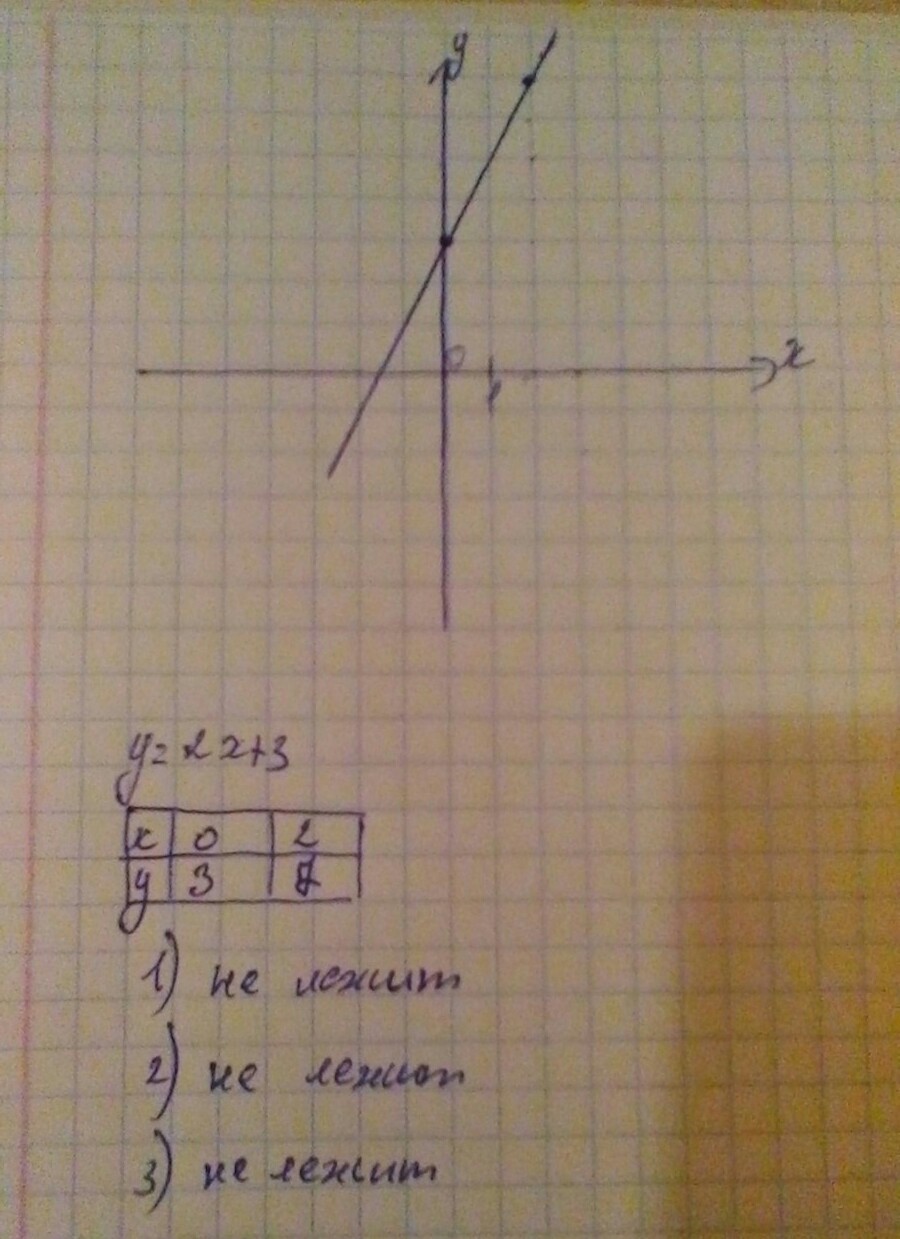 y
0
x
1
y=2x+3
x 0 2
y 3 7
1) не лежит
2) не лежит
3) не лежит